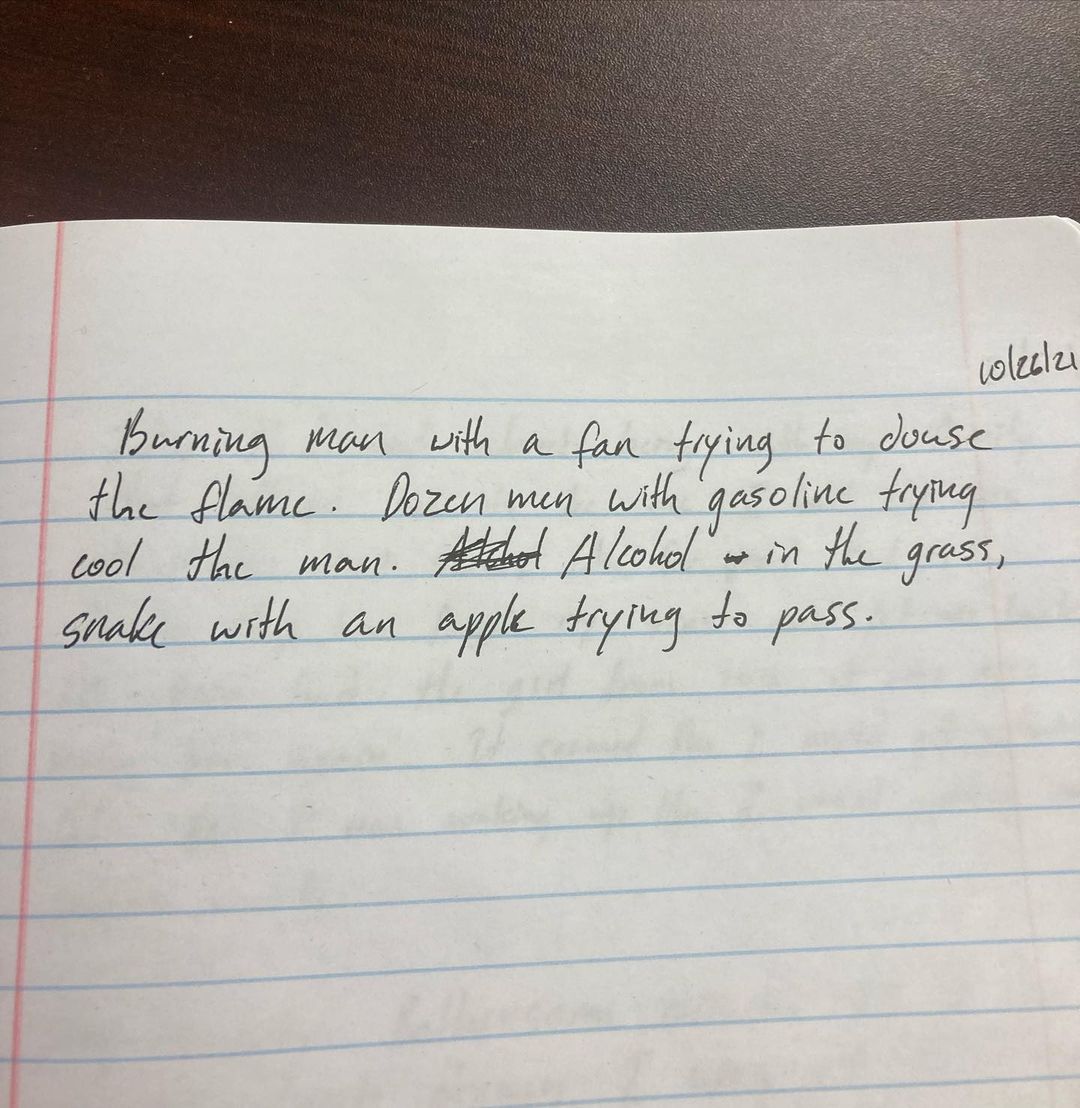 10/26/21
Burning man with a fan trying to douse
the flame. Dozen men with gasoline trying
cool the man. Alcohol in the grass,
snake with an apple trying to pass.